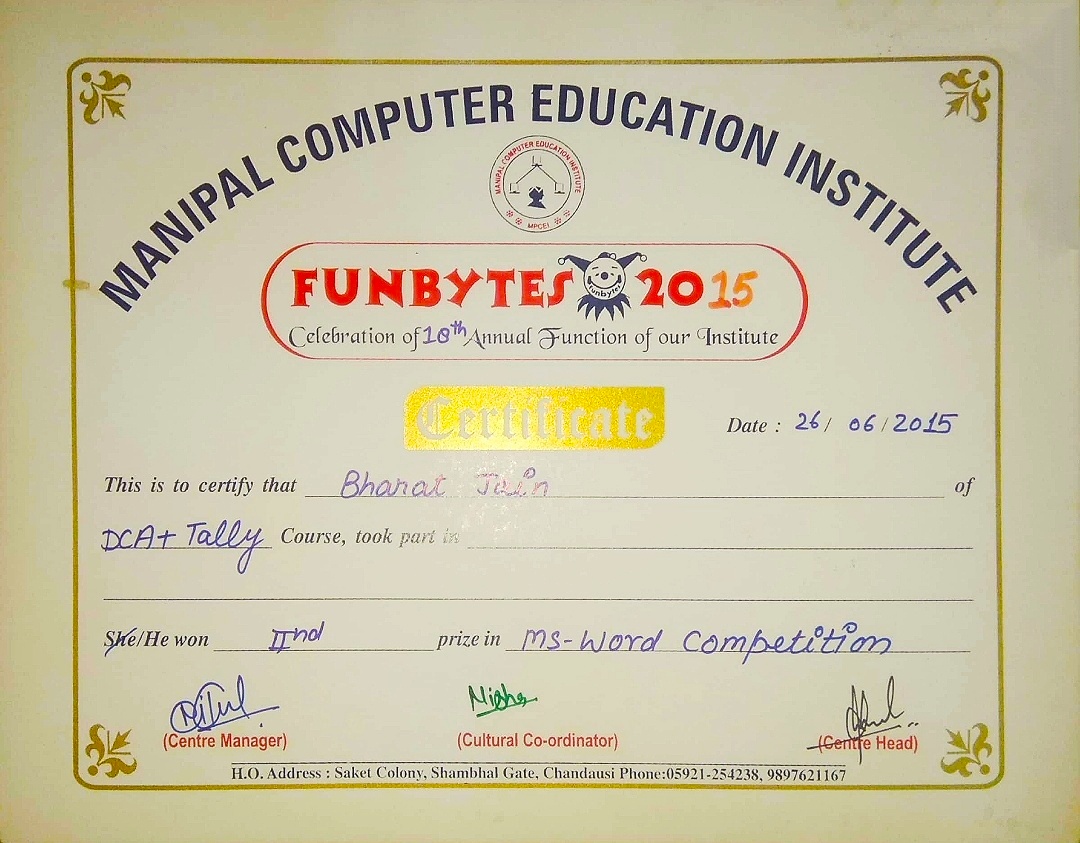 MANIPAL COMPUTER EDUCATION INSTITUTE
MANIPAL COMPUTER EDUCATION INSTITUTE
MPCEI
FUNBYTES funbytes 2015
Celebration of 10th Annual Function of our Institute
Certificate
Date : 26/ 06/2015
This is to certify that Bharat Jain of
DCA+ Tally Course, took part in
She/He won IInd prize in MS-Word Competition
Nisha
(Centre Manager) (Cultural Co-ordinator) (Centre Head)
H.O. Address : Saket Colony, Shambhal Gate, Chandausi Phone:05921-254238, 9897621167